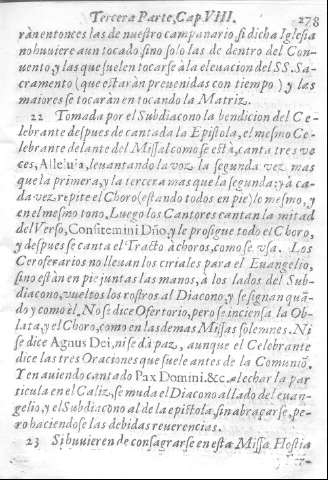 Tercera Parte, Cap VIII. 278
rán entonces las de nuestro campanario si dicha Iglesia
no huviere aun tocado, sino solo las de dentro del Con-
uento, y las que suelen tocarse à la eleuacion del SS. Sa-
cramento (que estaràn preuenidas con tiempo) y las
maiores se tocaràn en tocando la Matriz.
22 Tomada por el Subdiacono la bendicion del Ce-
lebrante despues de cantada la Epistola, el mesmo Ce-
lebrante delante del Missal como se està, canta tres ve
ces, Alleluia, leuantando la voz la segunda vez mas
que la primera, y la tercera mas que la segunda: y à ca-
da vez repite el Choro (estando todos en pie) lo mesmo, y
en el mesmo tono. Luego los Cantores cantan la mitad
del Verso, Confitemini Dño, y le prosigue todo el Choro,
y despues se canta el Tracto à choros, como se vsa. Los
Ceroferarios no lleuan los ciriales para el Euangelio,
sino estàn en pie juntas las manos, à los lados del Sub-
diacono, vueltos los rostros al Diacono, y se signan quã-
do y como èl. No se dice Ofertorio, pero se inciensa la Ob-
lata, y el Choro, como en las demas Missas solemnes. Ni
se dice Agnus Dei, ni se dà paz, aunque el Celebrante
dice las tres Oraciones que suele antes de la Comuniõ.
Y en auiendo cantado Pax Domini. &c. al echar la par
ticula en el Caliz, se muda el Diacono al lado del euan-
gelio, y el Subdiacono al de la epistola, sin abraçarse, pe-
ro haciendose las debidas reuerencias.
23 Si huvieren de consagrarse en esta Missa Hostia